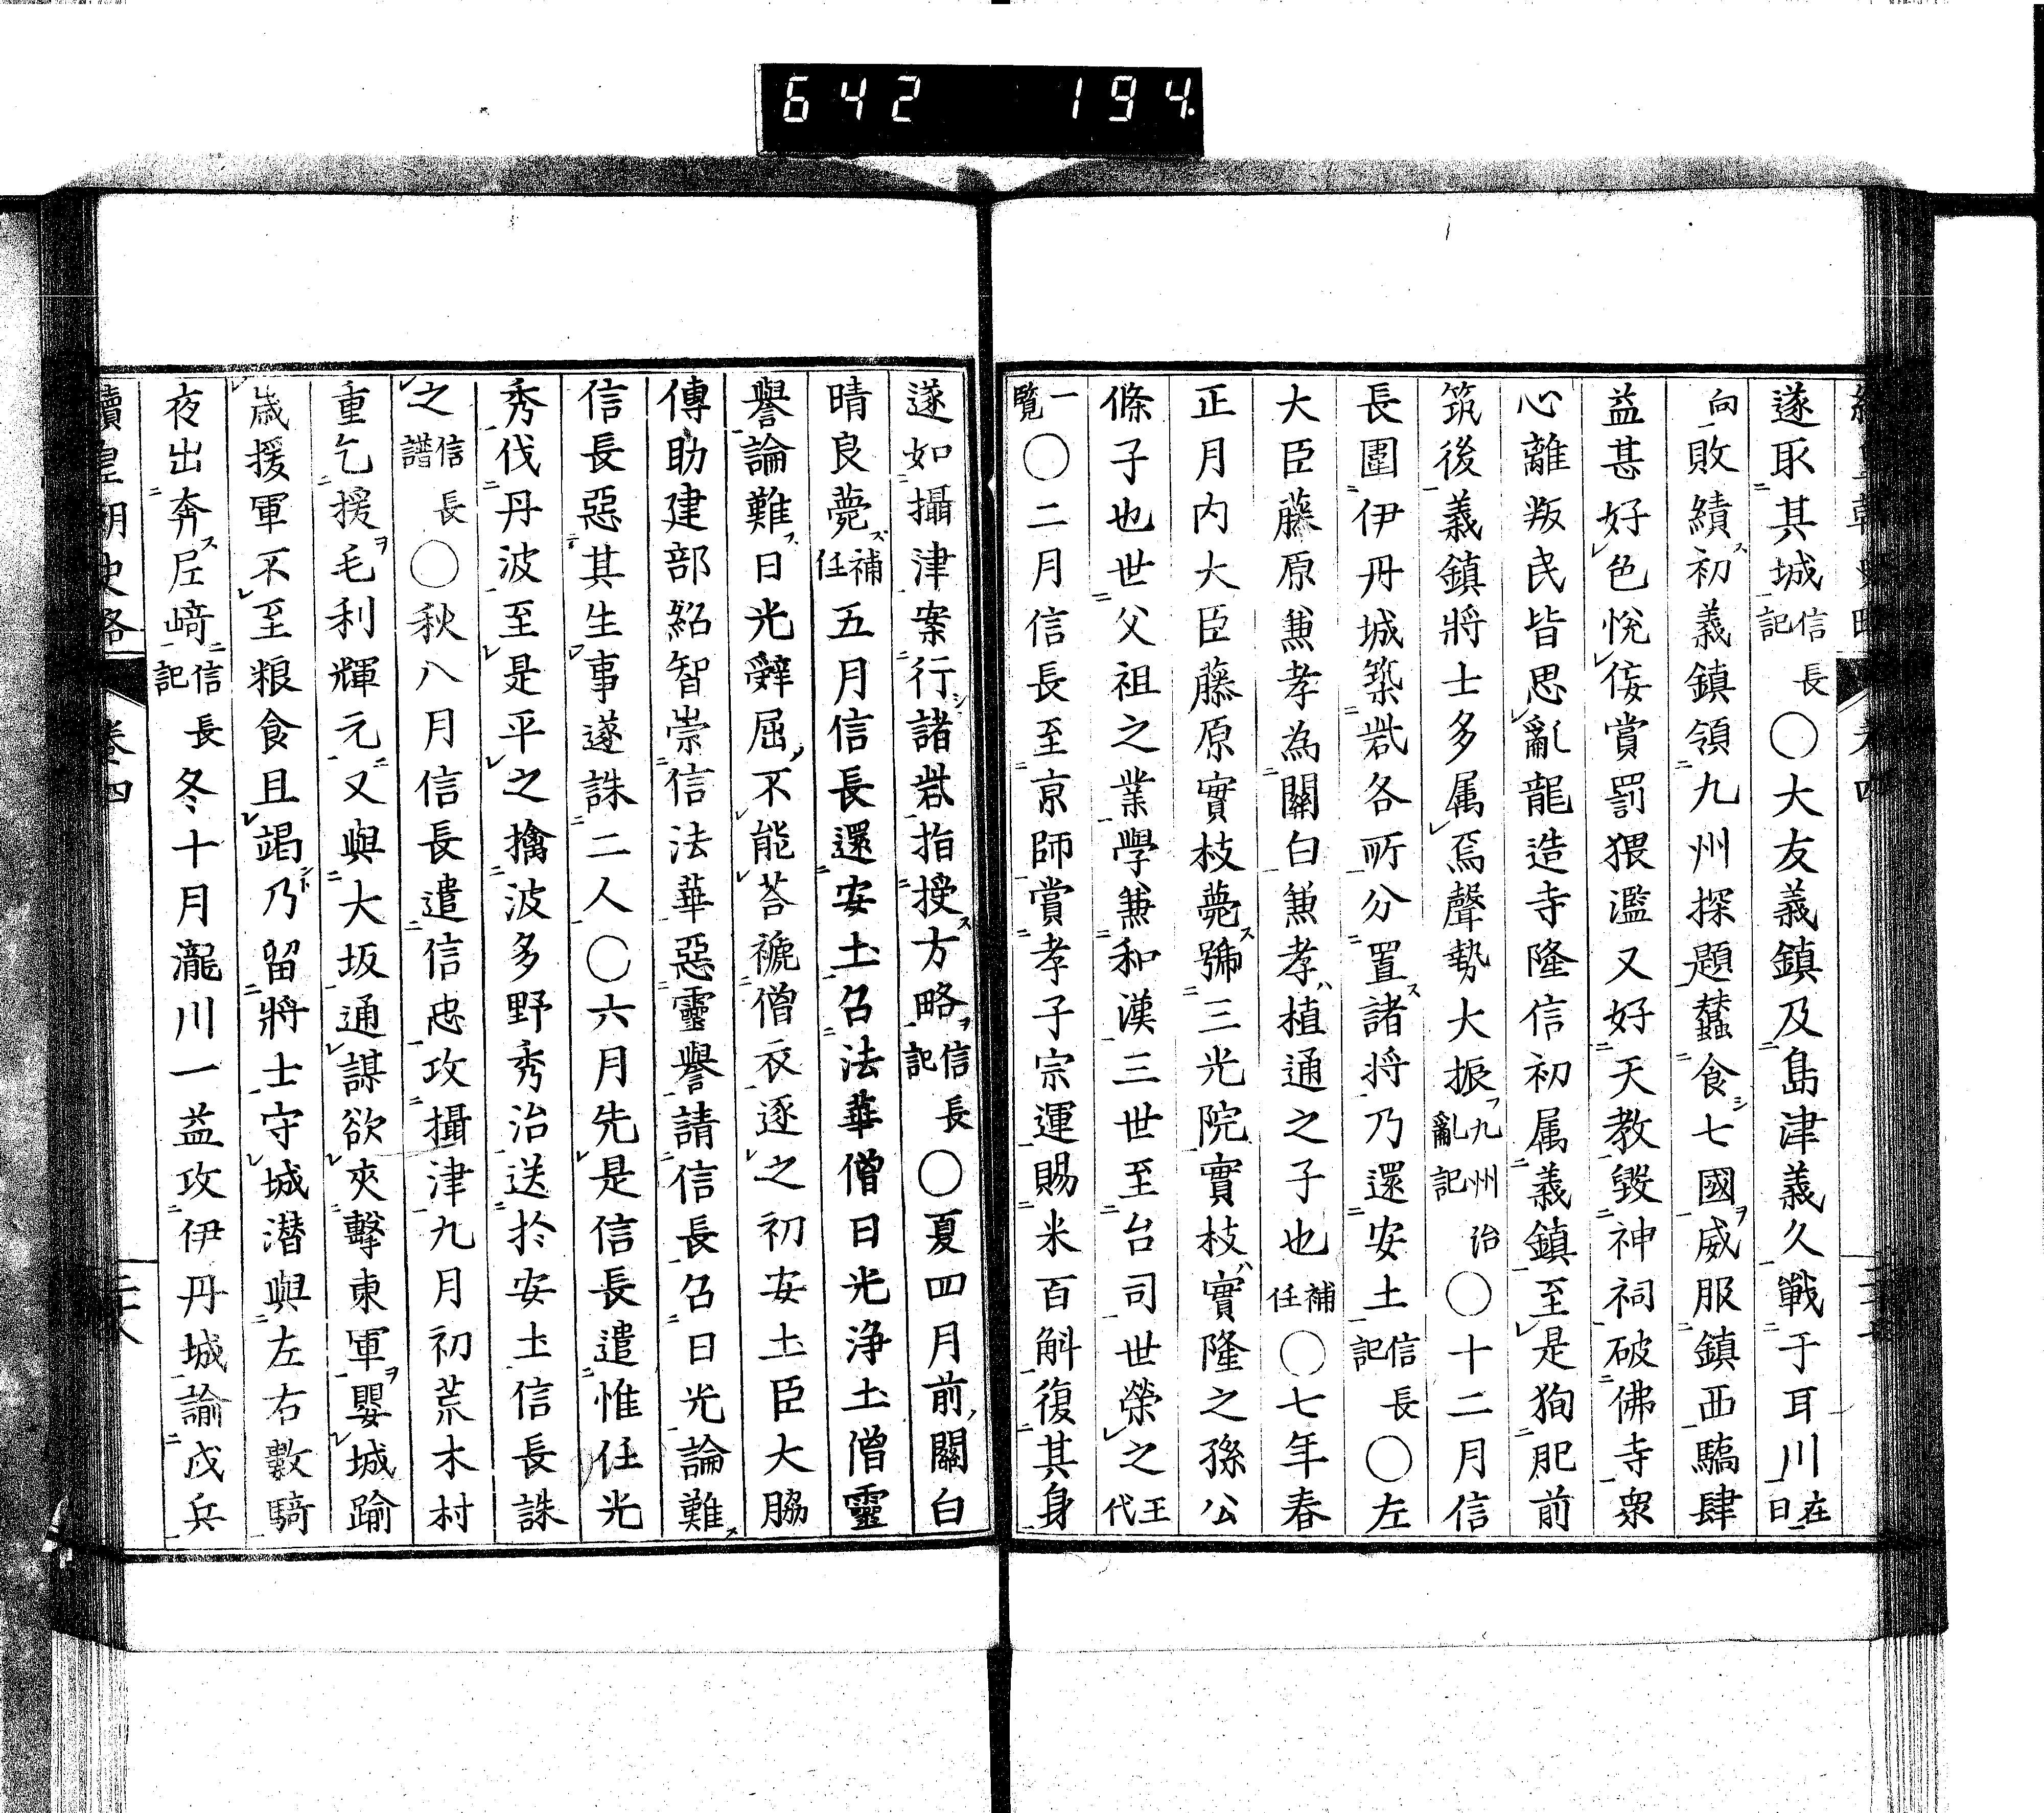 642 194
遂取其城信長記○大友義鎮及島津義久戰于耳川在日
向敗績初義鎮領九州探題蠶食七國威服鎮西驕肆
益甚好色悅侫賞罰猥濫又好天教毀神祠破佛寺衆
心離叛民皆思亂龍造寺隆信初属義鎮至是狥肥前
筑後義鎮將士多属焉聲勢大振九州治亂記○十二月信
長圍伊丹城築砦各所分置諸將乃還安土信長記○左
大臣藤原兼孝為關白兼孝植通之子也補任○七年春
正月内大臣藤原實枝薨號三光院實枝實隆之孫公
條子也世父祖之業學兼和漢三世至台司世榮之王代
一覽○二月信長至京師賞孝子宗運賜米百斛復其身
遂如攝津案行諸砦指授方略信長記○夏四月前關白
晴良薨補任五月信長還安土召法華僧日光淨土僧靈
譽論難日光辭屈不能荅褫僧衣逐之初安土臣大脇
傳助建部紹智崇信法華惡靈譽請信長召日光論難
信長惡其生事遂誅二人○六月先是信長遣惟任光
秀伐丹波至是平之擒波多野秀治送於安土信長誅
之信長譜○秋八月信長遣信忠攻攝津九月初荒木村
重乞援毛利輝元又與大坂通謀欲夾擊東軍嬰城踰
歳援軍不至粮食且竭乃留將士守城潛與左右數騎
夜出奔尼﨑信長記冬十月瀧川一益攻伊丹城諭戍兵
續皇朝史略 卷四